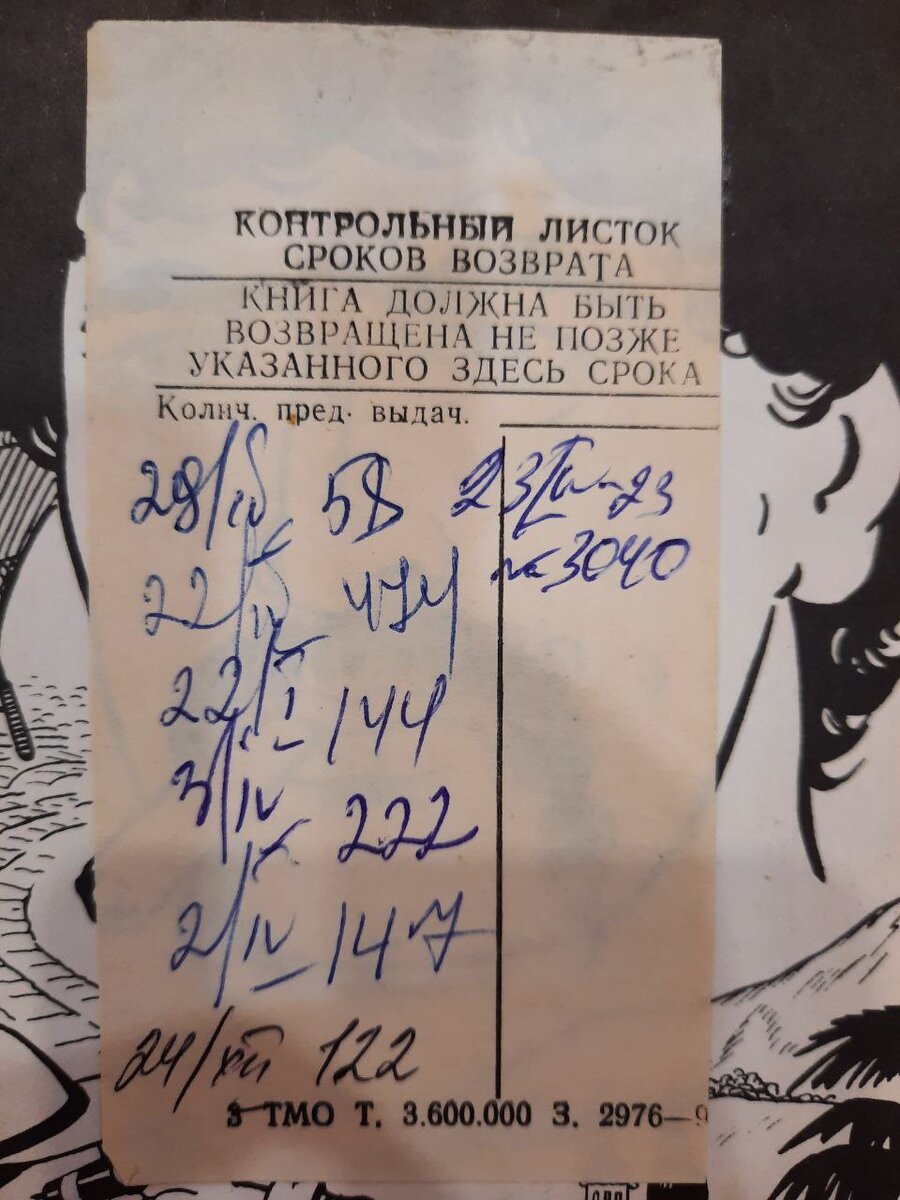 КОНТРОЛЬНЫЙ ЛИСТОК
СРОКОВ ВОЗВРАТА
КНИГА ДОЛЖНА БЫТЬ
ВОЗВРАЩЕНА НЕ ПОЗЖЕ
УКАЗАННОГО ЗДЕСЬ СРОКА
Колич. пред. выдач.
22/IV 474
22/I 144
3/IV 222
2/IV 147
24/XII 122
3040
3 ТМО Т. 3.600.000 З. 2976—9